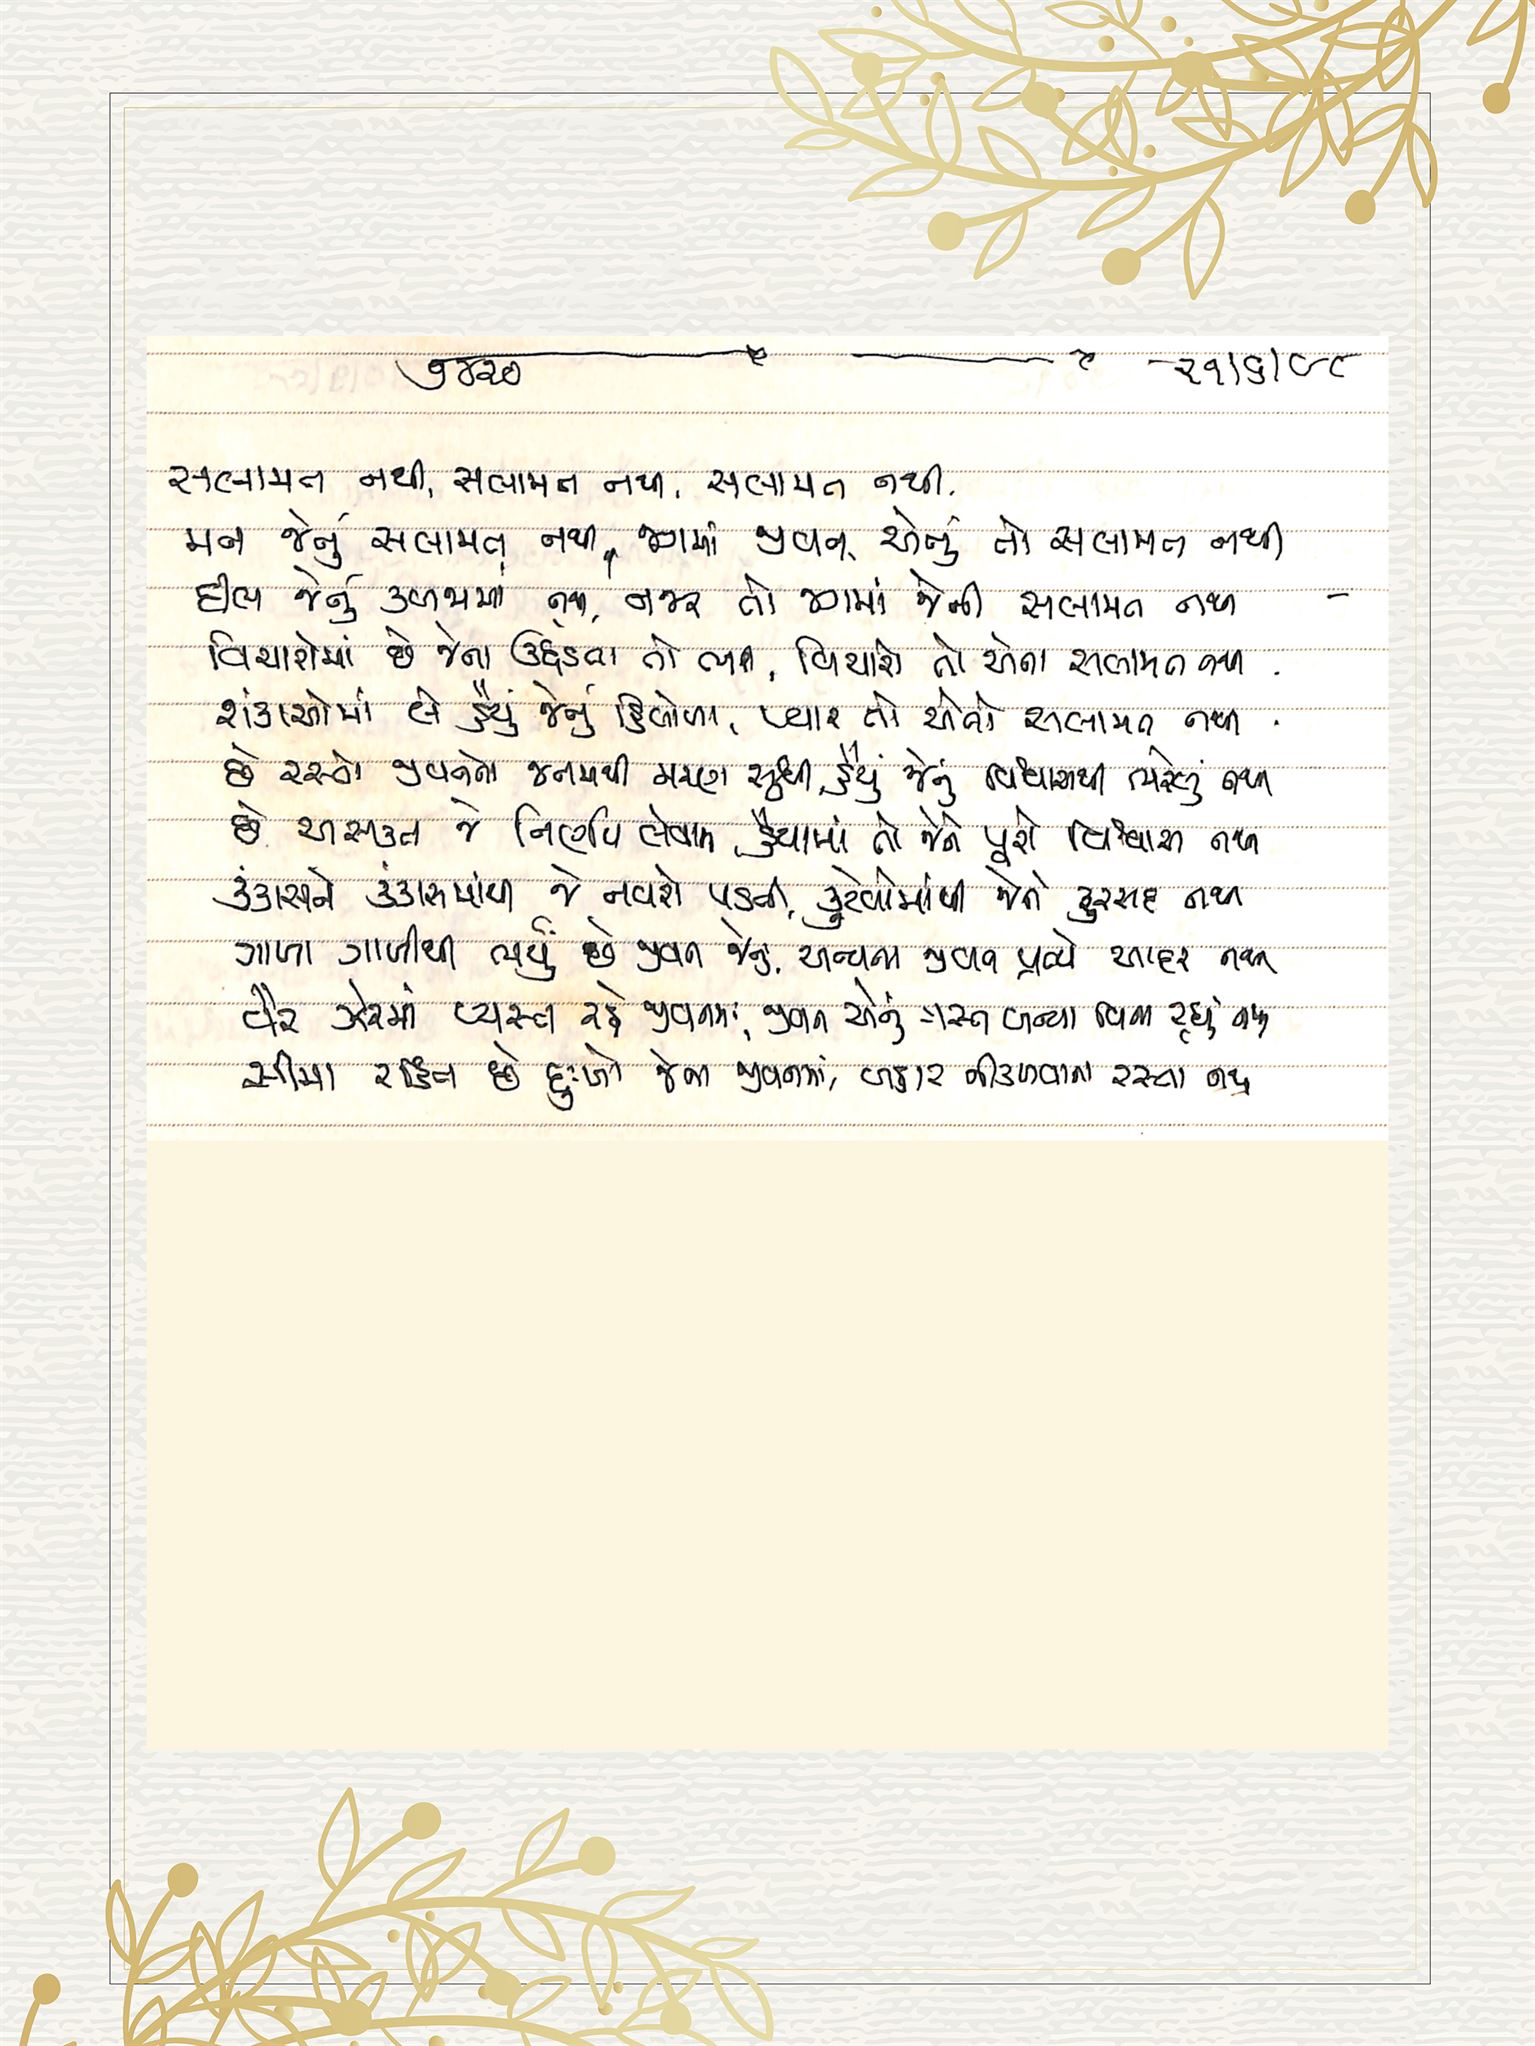 ૭૪૨૭ ૨૧/૬/૯૮
સલામત નથી, સલામત નથી, સલામત નથી.
મન જેનું સલામત નથી, જગમાં જીવન એનું તો સલામત નથી
દીલ જેનું કબજામાં નથી, નજર તો જગમાં જેની સલામત નથી
વિચારોમાં છે જેના ઉદ્દંડતા તો ભરી, વિચારો તો એના સલામત નથી.
શંકાઓમાં લે હૈયું જેનું હિલોળા, પ્યાર તો એનો સલામત નથી.
છે રસ્તો જીવનનો જનમથી મરણ સુધી, હૈયું જેનું વિશ્વાસથી ભરેલું નથી
છે અસક્ત જે નિર્ણય લેવામાં, હૈયામાં તો જેને પૂરો વિશ્વાસ નથી
કંકાસને કંકાસમાંથી જે નવરો પડતો નથી, કુટેવોમાંથી જેને ફુરસદ નથી
ગાળા ગાળીથી ભર્યું છે જીવન જેનું, અન્યના જીવન પ્રત્યે આદર નથી
વૈર ઝેરમાં વ્યસ્ત રહે જીવનમાં, જીવન એનું ગ્રસ્ત બન્યા વિના રહ્યું નથી
સીમા રહિત છે દુઃખો જેના જીવનમાં, બહાર નીકળવાના રસ્તા નથી